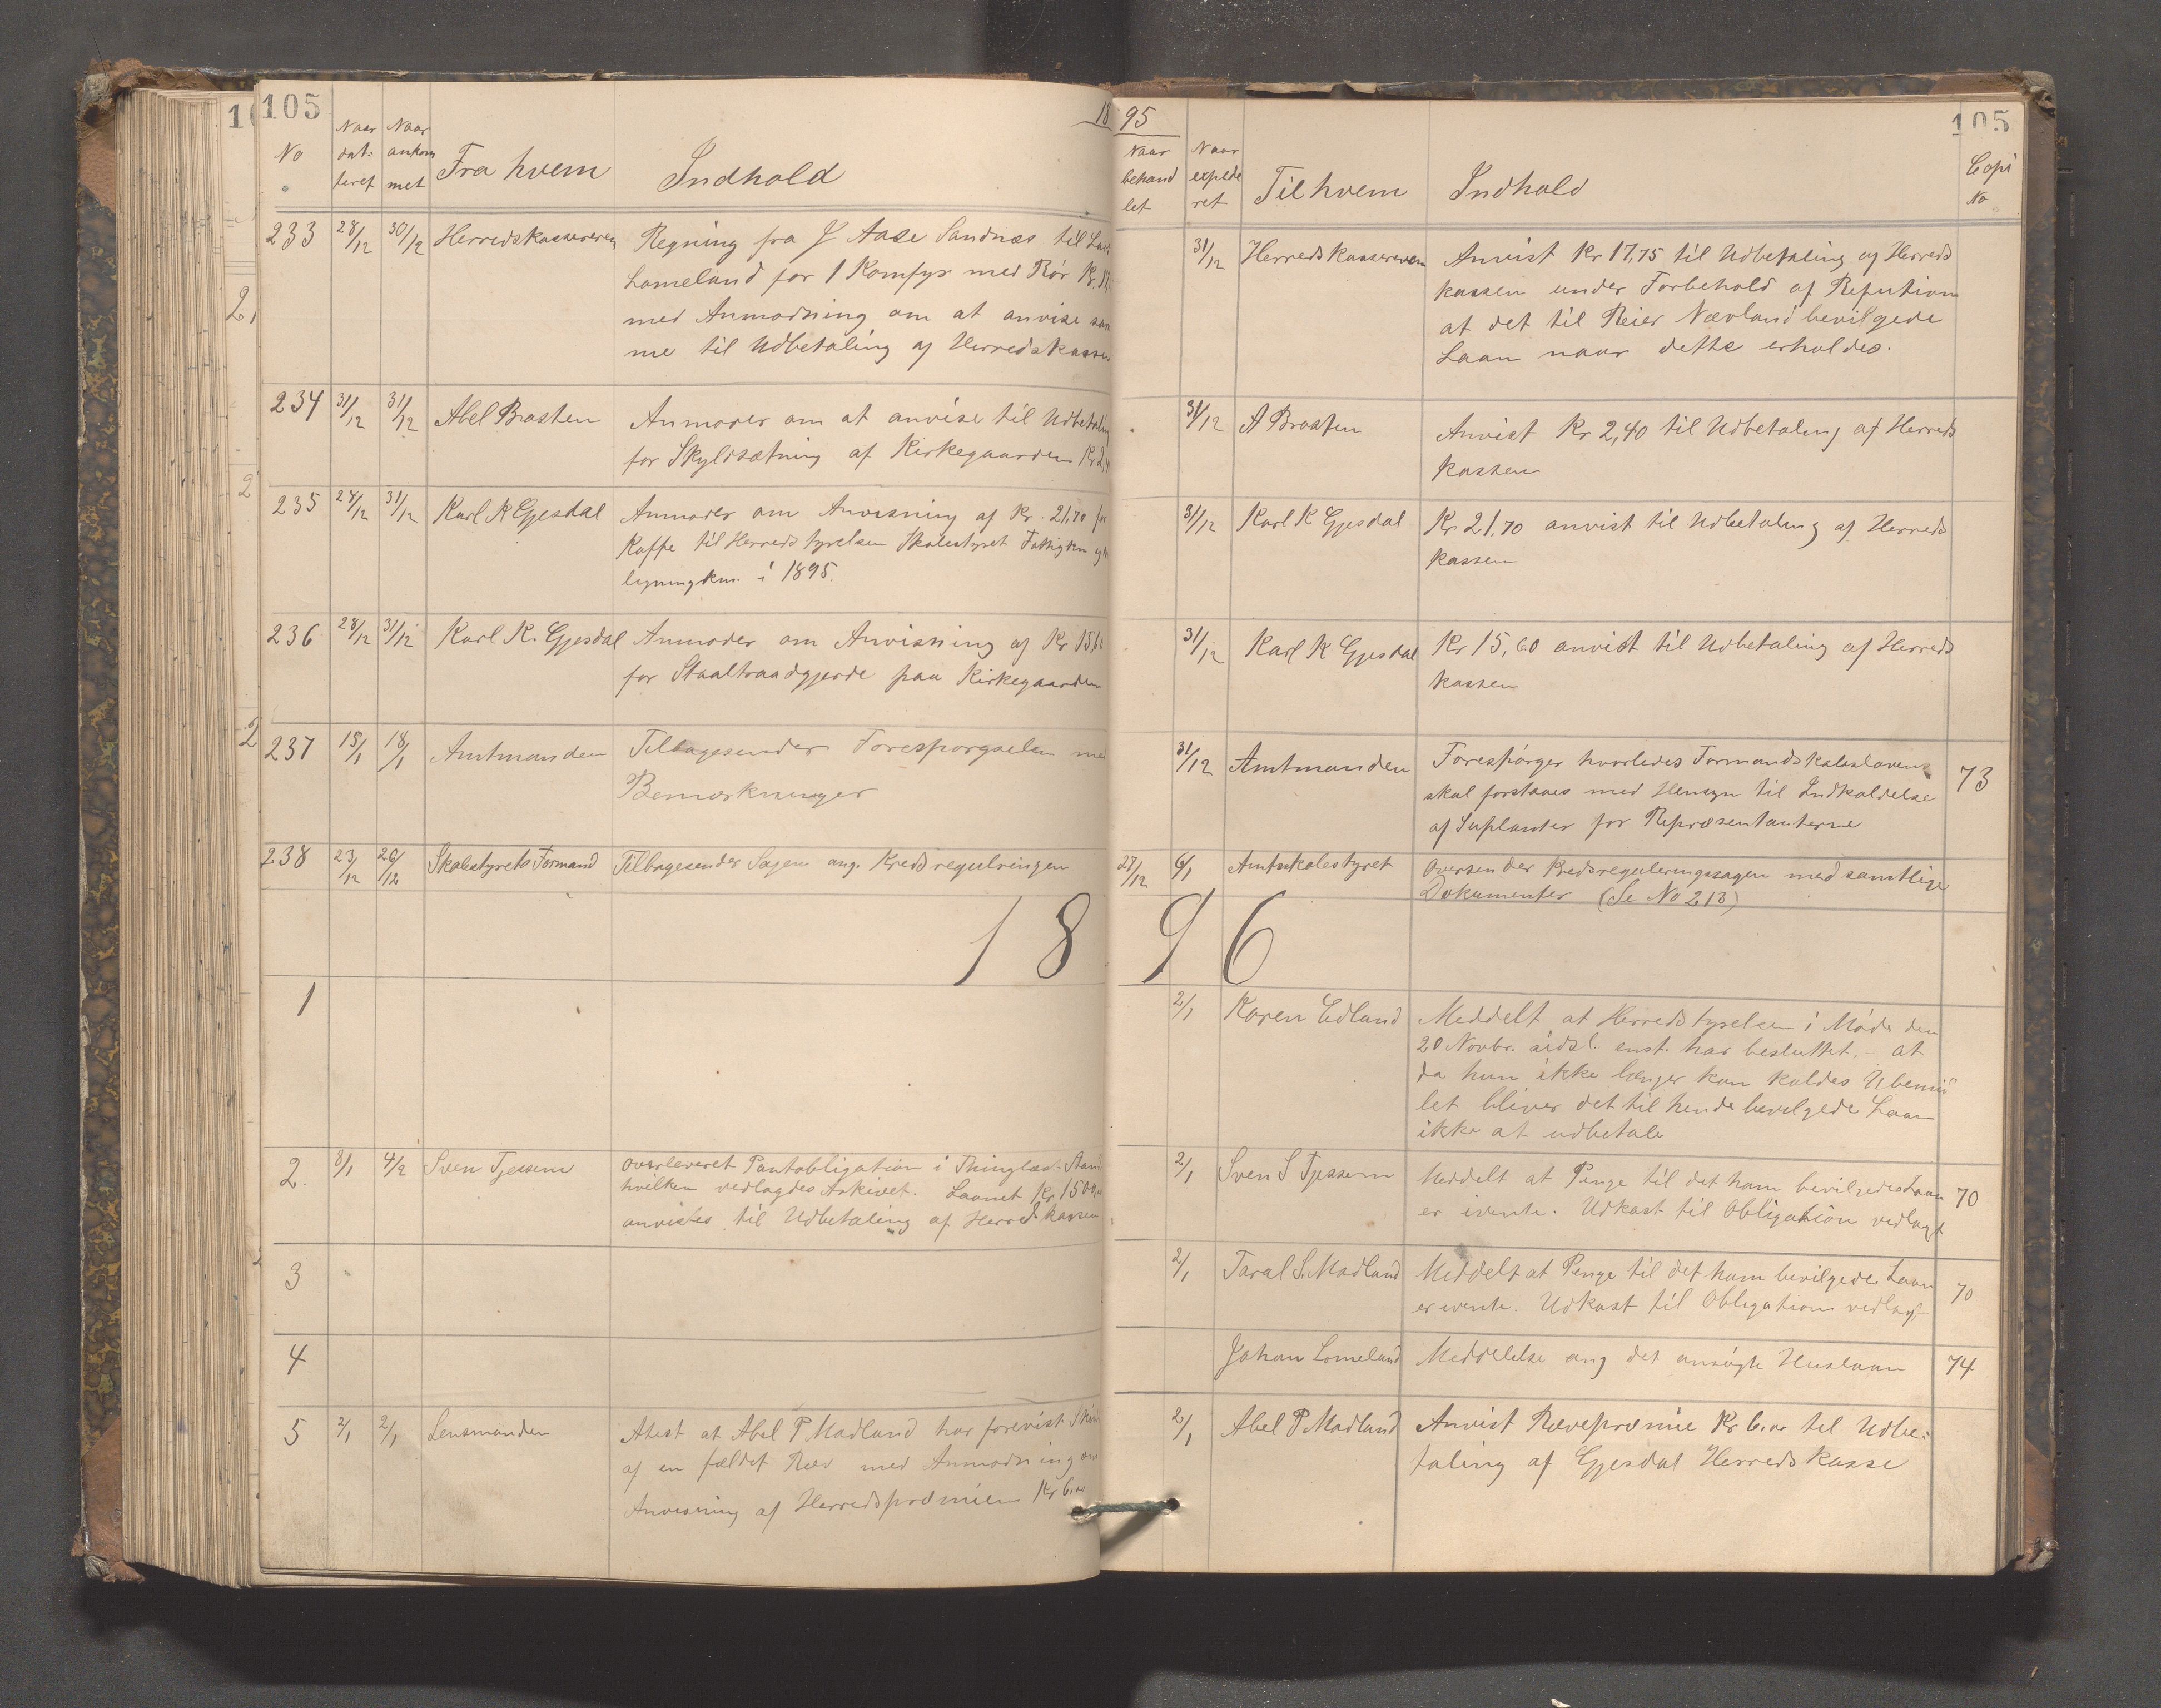 105
18
No
Naar dateret
Naar ankommet
Fra hvem
Indhold
233 28/12 30/12 Herredskassereren Regning fra J Aase Sandnæs til
Lomeland for 1 Komfyr med Rör Kr.
med Anmodning om at anvise sam
me til Udbetaling af Herredskassen
234 31/12 31/12 Abel Brasten Anmoder om at anvise til Udbetaling
for Skyldsætning af Kirkegaarden Kr 2,
235 24/12 31/12 Karl K Gjesdal Anmoder om Anvisning af Kr. 21,70 for
Kaffe til Herredstyrelsen Skolestyret Fattigkm og
ligningkm. i 1895.
236 28/12 31/12 Karl K. Gjesdal Anmoder om Anvisning af Kr 15,60
for Staaltraadgjerde paa Kirkegaarden
237 15/1 18/1 Amtmanden Tilbagesender Forespørgselen med
Bemærkninger
238 23/12 26/12 Skolestyrets Formand Tilbagesender Sagen ang. Kredsregulringen
18
1
2. 8/1 4/2 Sven Tjessem overleveret Pantobligation i Thinglæst Stand
hvilken vedlagdes Arkivet. Laanet Kr 1500,00
anvistes til Udbetaling af Herredskassen
3
4
5 2/1 2/1 Lensmanden Atest at Abel P Madland har forevist Skin
af en fældet Ræv med Anmodning om
Anvisning af Herredspræmien Kr 6.00
95
105
Naar behandlet
Naar expederet
Til hvem
Indhold
Copi No
31/12 Herredskassereren Anvist Kr 17,75 til Udbetaling af Herreds
kassen under Forbehold af Refution
at det til Reier Nævland bevilgede
Laan naar dette erholdes.
31/12 A Brasten Anvist Kr 2,40 til Udbetaling af Herreds
kassen
31/12 Karl K Gjesdal Kr 21,70 anvist til Udbetaling af Herreds
kassen
31/12 Karl K Gjesdal Kr 15,60 anvist til Udbetaling af Herreds
kassen
31/12 Amtmanden Forespörger hvorledes Formandskabsloven
skal forstaaes med Hensyn til Indkaldelse
af Suplanter for Repræsentanterne 73
27/12 6/1 Amtsskolestyret Oversender Kredsreguleringssagen med samtlige
Dokumenter (Se No 213)
96
2/1 Karen Edland Meddelt at Herredstyrelsen i Möde den
20 Novbr. sidsl. enst. har besluttet. - at
da hun ikke længer kan kaldes Ubemid
let bliver det til hende bevilgede Laan
ikke at udbetale
2/1 Sven S Tjessem Meddelt at Penge til det ham bevilgede Laan
er ivente. Udkast til Obligation vedlagt 70
2/1 Taral S. Madland Meddelt at Penge til det ham bevilgede Laan
er ivente. Udkast til Obligation vedlagt 70
Johan Lomeland Meddelelse ang det ansögte Huslaan 74
2/1 Abel P Madland Anvist Rævepræmie Kr 6.00 til Udbe-
taling af Gjesdal Herredskasse